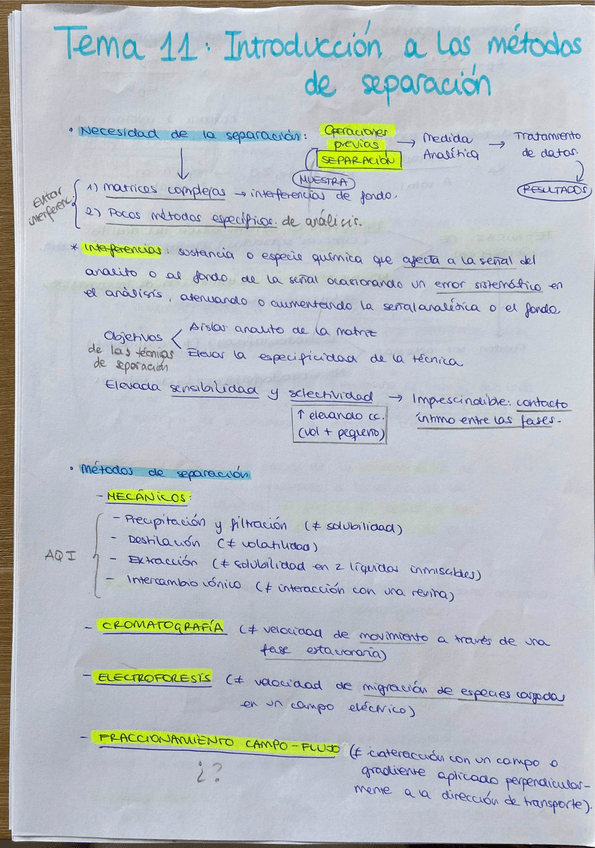 Tema 11: Introducción a los métodos
de separación
• Necesidad de la separación: Operaciones previas SEPARACIÓN → Medida Analítica → Tratamiento de datos.
MUESTRA
RESULTADOS
Evitar interferenc.
1) Matrices complejas → interferencias de fondo.
2) Pocos métodos específicos de análisis.
* Interferencias: sustancia o especie química que afecta a la señal del
analito o al fondo de la señal ocasionando un error sistemático en
el análisis, atenuando o aumentando la señal analítica o el fondo.
Objetivos de las técnicas de separación < Aislar analito de la matriz
Elevar la especificidad de la técnica.
Elevada sensibilidad y selectividad → Imprescindible: contacto
íntimo entre las fases.
↑ elevando cc.
(vol + pequeño)
• Métodos de separación
- MECÁNICOS:
AQI
- Precipitación y filtración (≠ solubilidad)
- Destilación (≠ volatilidad)
- Extracción (≠ solubilidad en 2 líquidos inmiscibles)
- Intercambio iónico (≠ interacción con una resina)
- CROMATOGRAFÍA (≠ velocidad de movimiento a través de una
fase estacionaria)
- ELECTROFORESIS (≠ velocidad de migración de especies cargadas
en un campo eléctrico)
- FRACCIONAMIENTO CAMPO-FLUJO (≠ interacción con un campo o
gradiente aplicado perpendicular-
mente a la dirección de transporte).
¿?